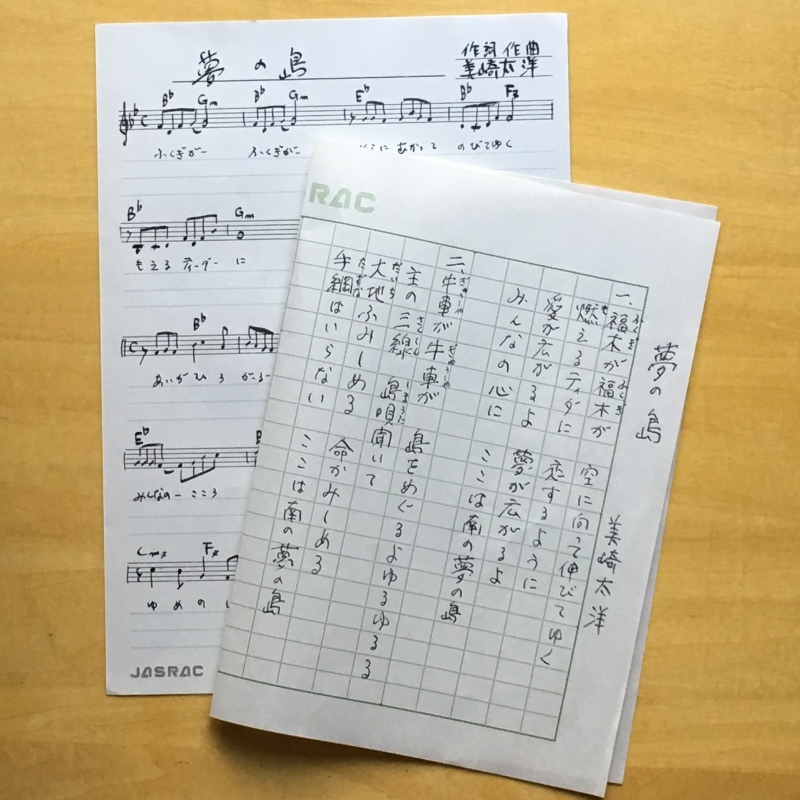 夢の島
作詞 作曲
美崎太洋
B♭ Gm B♭ Gm E♭ B♭ F7
ふくぎがー ふくぎがー むかって のびてゆく
B♭ Gm
もえる ティダーに
B♭
あいがひろがるー
E♭
みんなのー こころ
Cm7 F7
ゆめの
JASRAC
RAC
夢の島
美崎太洋
一、福木が福木が 空に向って伸びてゆく
ふくぎ ふくぎ
燃えるティダに 恋するように
も
愛が広がるよ 夢が広がるよ
みんなの心に ここは南の夢の島
二、牛車が牛車が 島をめぐるよゆるゆる
ぎゅうしゃ ぎゅうしゃ
主の三線 島唄聞いて
さんしん しまうた
大地ふみしめる 命かみしめる
だいち
手綱はいらない ここは南の夢の島
たづな